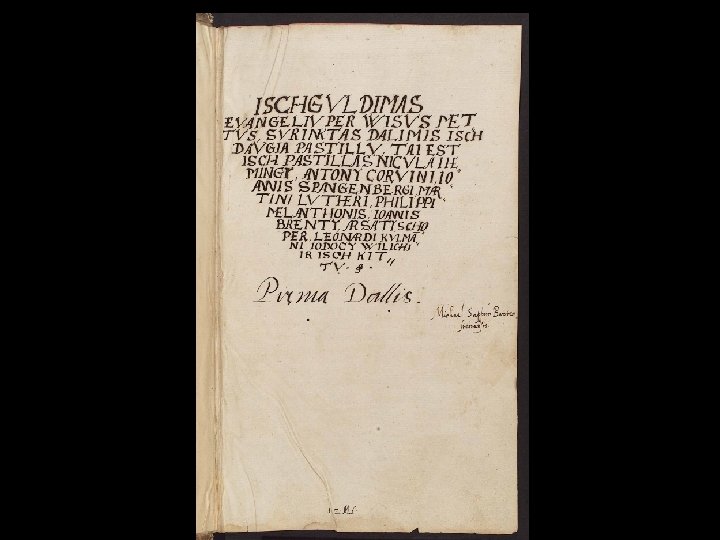 ISCHGVLDIMAS
EVANGELIV PER WISVS PET
TVS, SVRINKTAS DALIMIS ISCH
DAVGIA PASTILLV. TAI EST
ISCH PASTILLAS NICVLAI HE
MINGY, ANTONY CORVINI, IO
ANNIS SPANGENBERGI, MAR
TINI LVTHERI, PHILIPPI
MELANTHONIS, IOANNIS
BRENTY, ARSATI SCHO
PER, LEONARDI KVLMA
NI IODOCY WILICHI
IR ISCH KIT
TV.
Pirma Dallis.